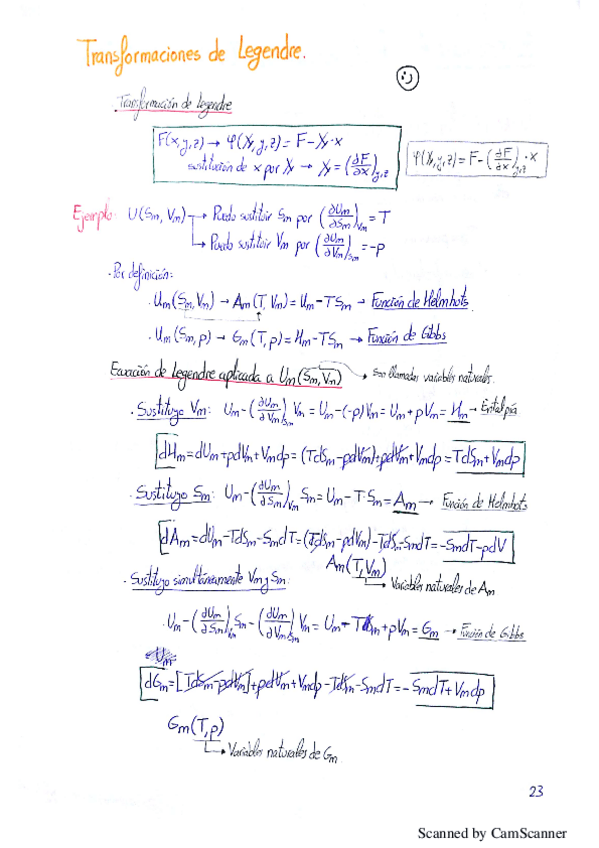 Transformaciones de Legendre.
. Transformación de legendre
F(x,y,z) → φ(X,y,z) = F - X·x
sustitución de x por X → X = (∂F/∂x)y,z
φ(X,y,z) = F - (∂F/∂x)y,z · x
Ejemplo: U(Sm, Vm) → Puedo sustituir Sm por (∂Um/∂Sm)Vm = T
↳ Puedo sustituir Vm por (∂Um/∂Vm)Sm = -p
· Por definición:
· Um(Sm,Vm) → Am(T,Vm) = Um - TSm → Función de Helmhots
· Um(Sm,p) → Gm(T,p) = Hm - TSm → Función de Gibbs
Ecuación de legendre aplicada a Um(Sm,Vm) → son llamadas variables naturales.
· Sustituyo Vm: Um - (∂Um/∂Vm)Sm Vm = Um - (-p)Vm = Um + pVm = Hm → Entalpía
dHm = dUm + pdVm + Vmdp = (TdSm - pdVm) + pdVm + Vmdp = TdSm + Vmdp
· Sustituyo Sm: Um - (∂Um/∂Sm)Vm Sm = Um - T·Sm = Am → Función de Helmhots
dAm = dUm - TdSm - SmdT = (TdSm - pdVm) - TdSm - SmdT = -SmdT - pdV
Am(T,Vm)
↳ Variables naturales de Am
· Sustituyo simultáneamente Vm y Sm:
· Um - (∂Um/∂Sm)Vm Sm - (∂Um/∂Vm)Sm Vm = Um - TSm + pVm = Gm → Función de Gibbs
Um
dGm = [TdSm - pdVm] + pdVm + Vmdp - TdSm - SmdT = -SmdT + Vmdp
Gm(T,p)
↳ Variables naturales de Gm
23
Scanned by CamScanner